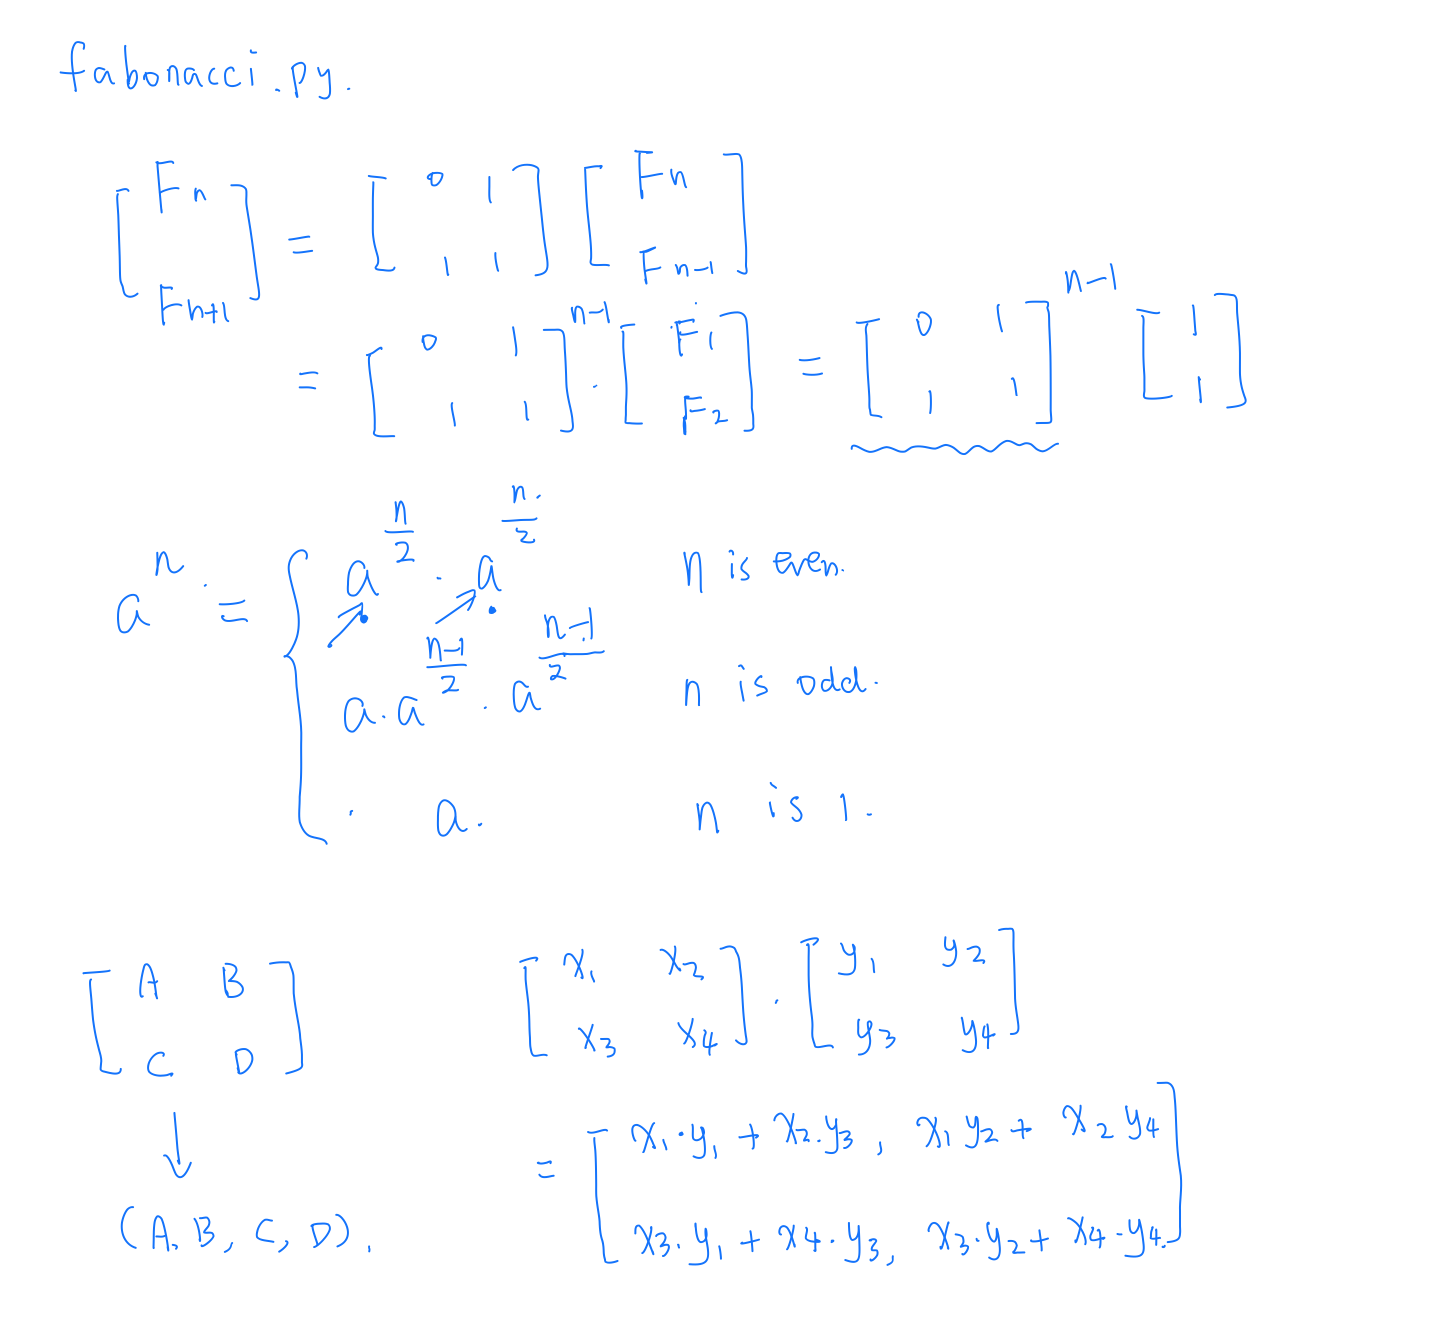 fabonacci.py.
[Fn Fn+1] = [0 1 1 1] [Fn Fn-1]
= [0 1 1 1]^n-1 · [F1 F2] = [0 1 1 1]^n-1 [1 1]
a^n = { a^n/2 · a^n/2 n is even.
a·a^n-1/2 · a^n-1/2 n is odd.
a. n is 1.
[A B C D] [x1 x2 x3 x4] · [y1 y2 y3 y4]
↓
= [x1·y1 + x2·y3, x1y2 + x2y4
(A, B, C, D). x3·y1 + x4·y3, x3·y2 + x4·y4]